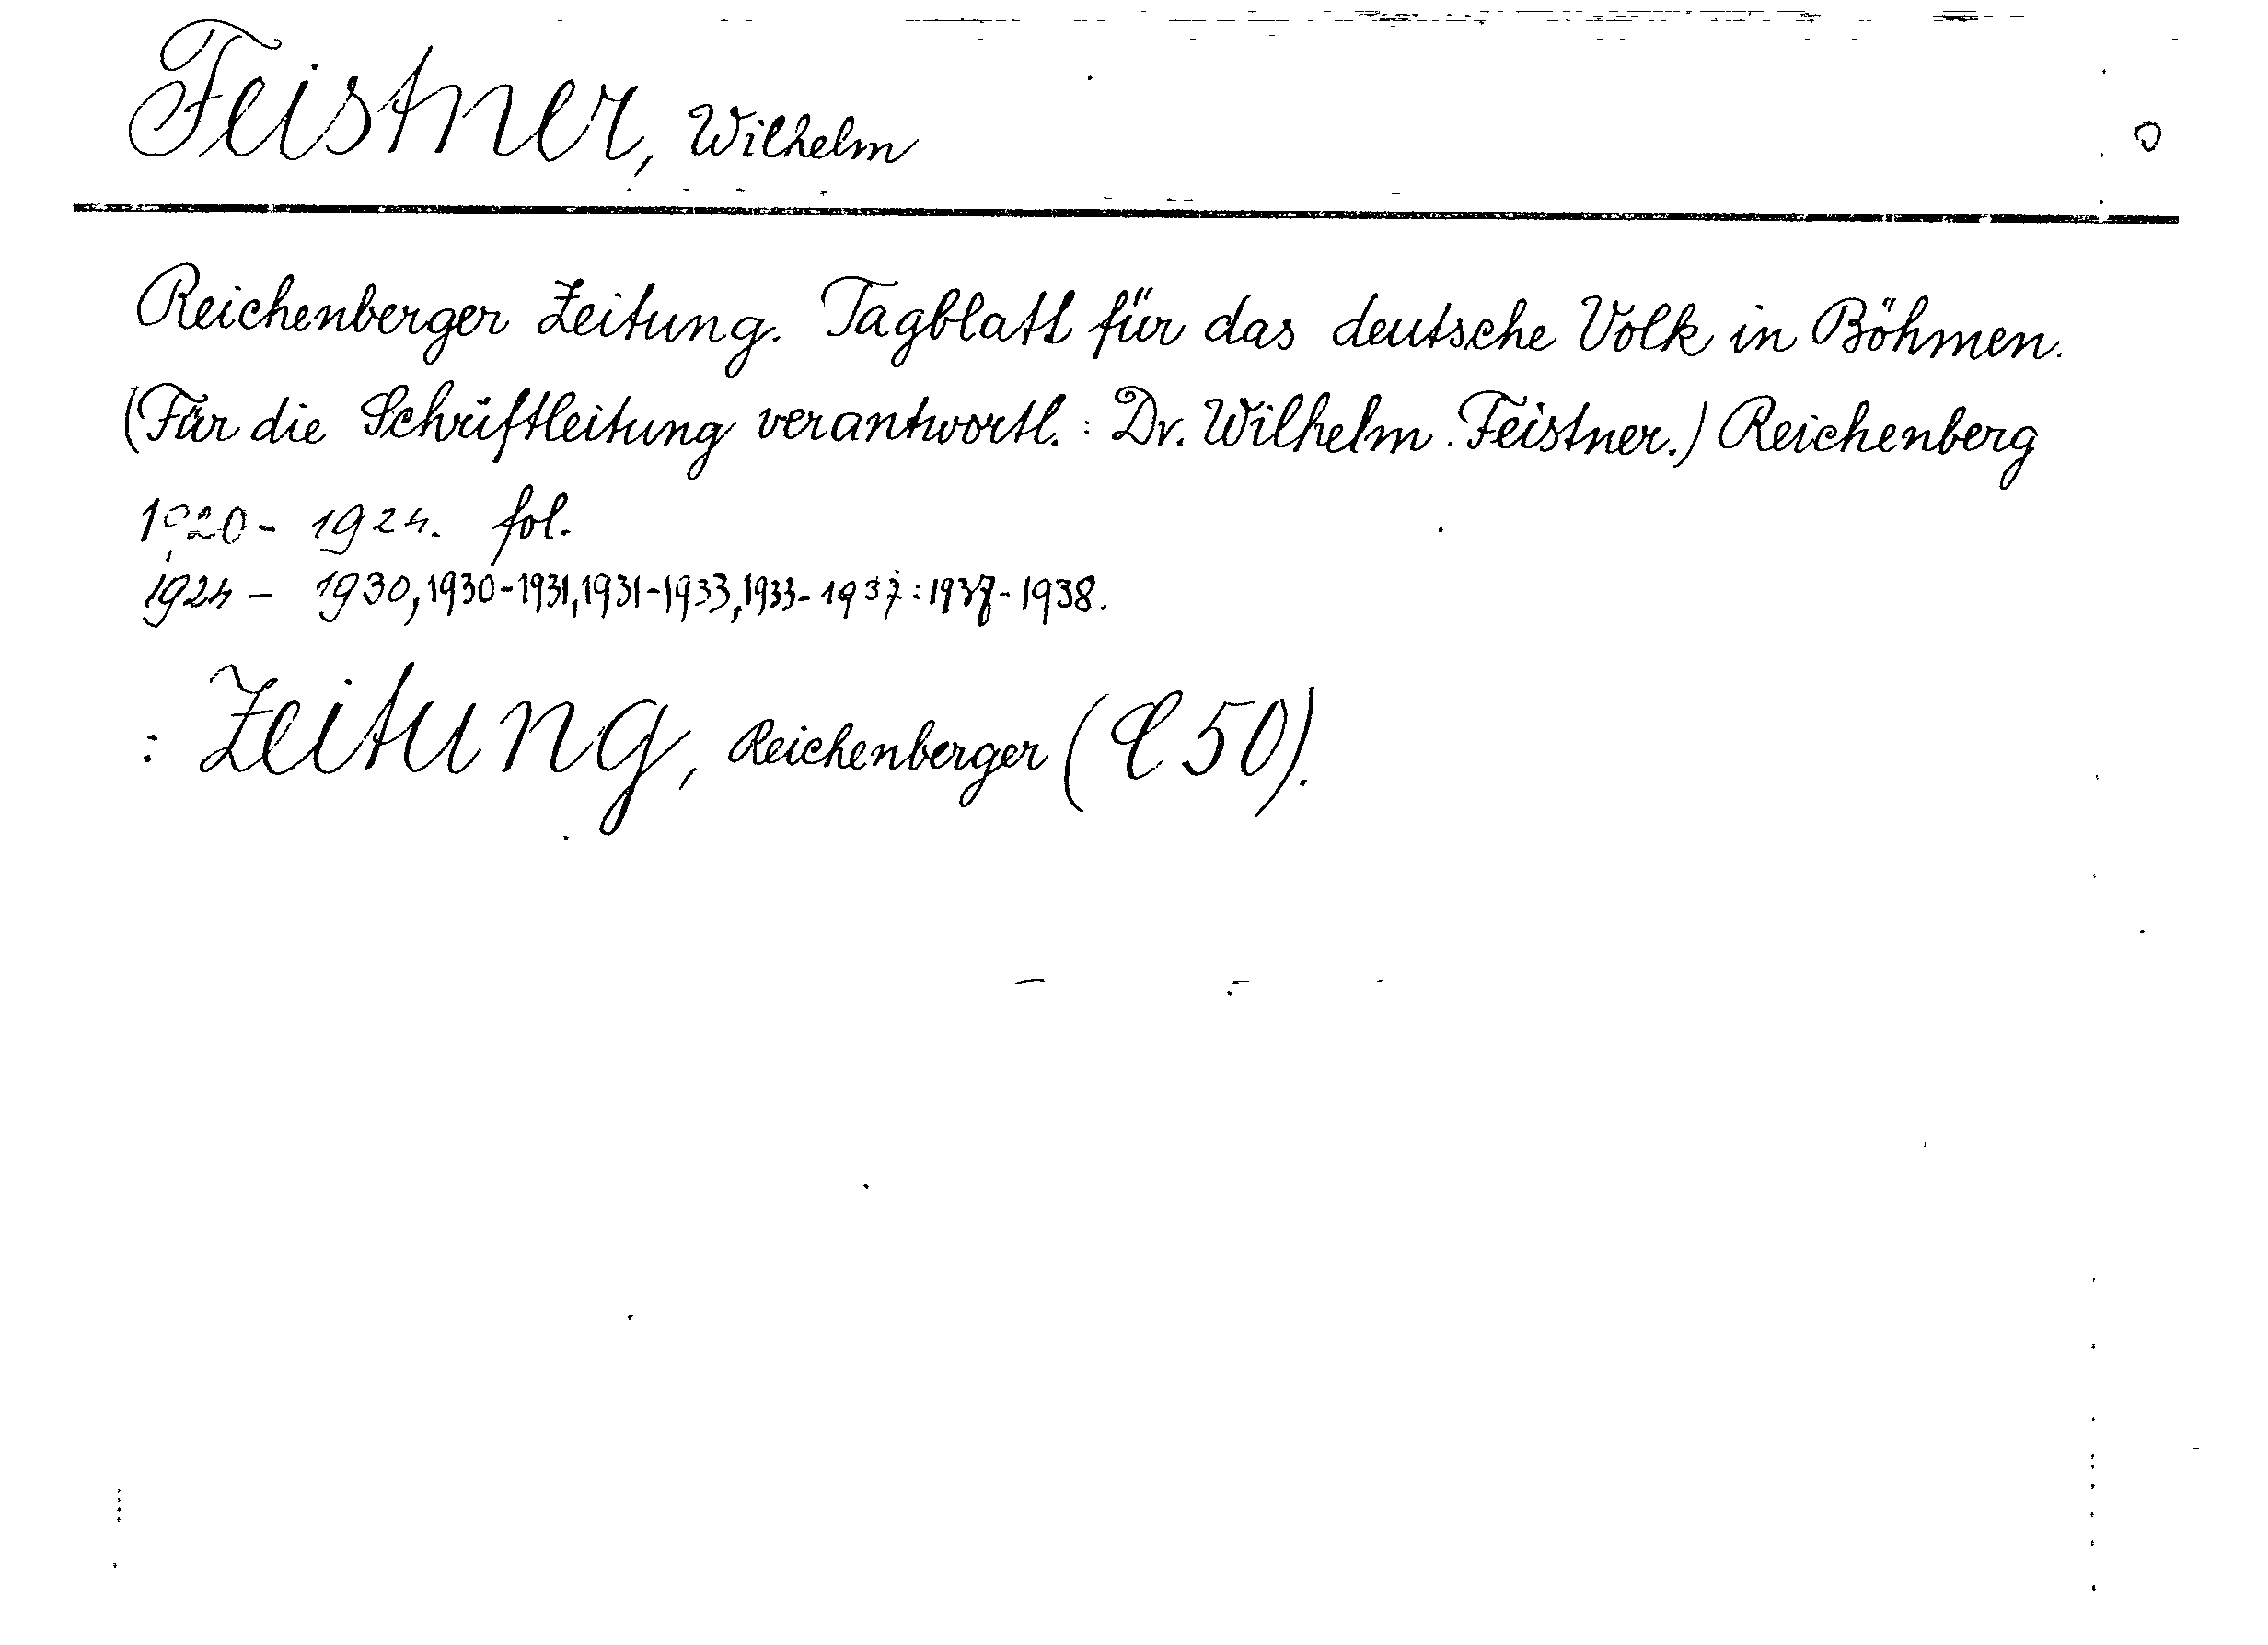 Feistner, Wilhelm
Reichenberger Zeitung. Tagblatt für das deutsche Volk in Böhmen.
(Für die Schriftleitung verantwortl.: Dr. Wilhelm Feistner.) Reichenberg
1920 - 1924. fol.
1924 - 1930, 1930-1931, 1931-1933, 1933-1937: 1937-1938.
: Zeitung, Reichenberger ( 50).